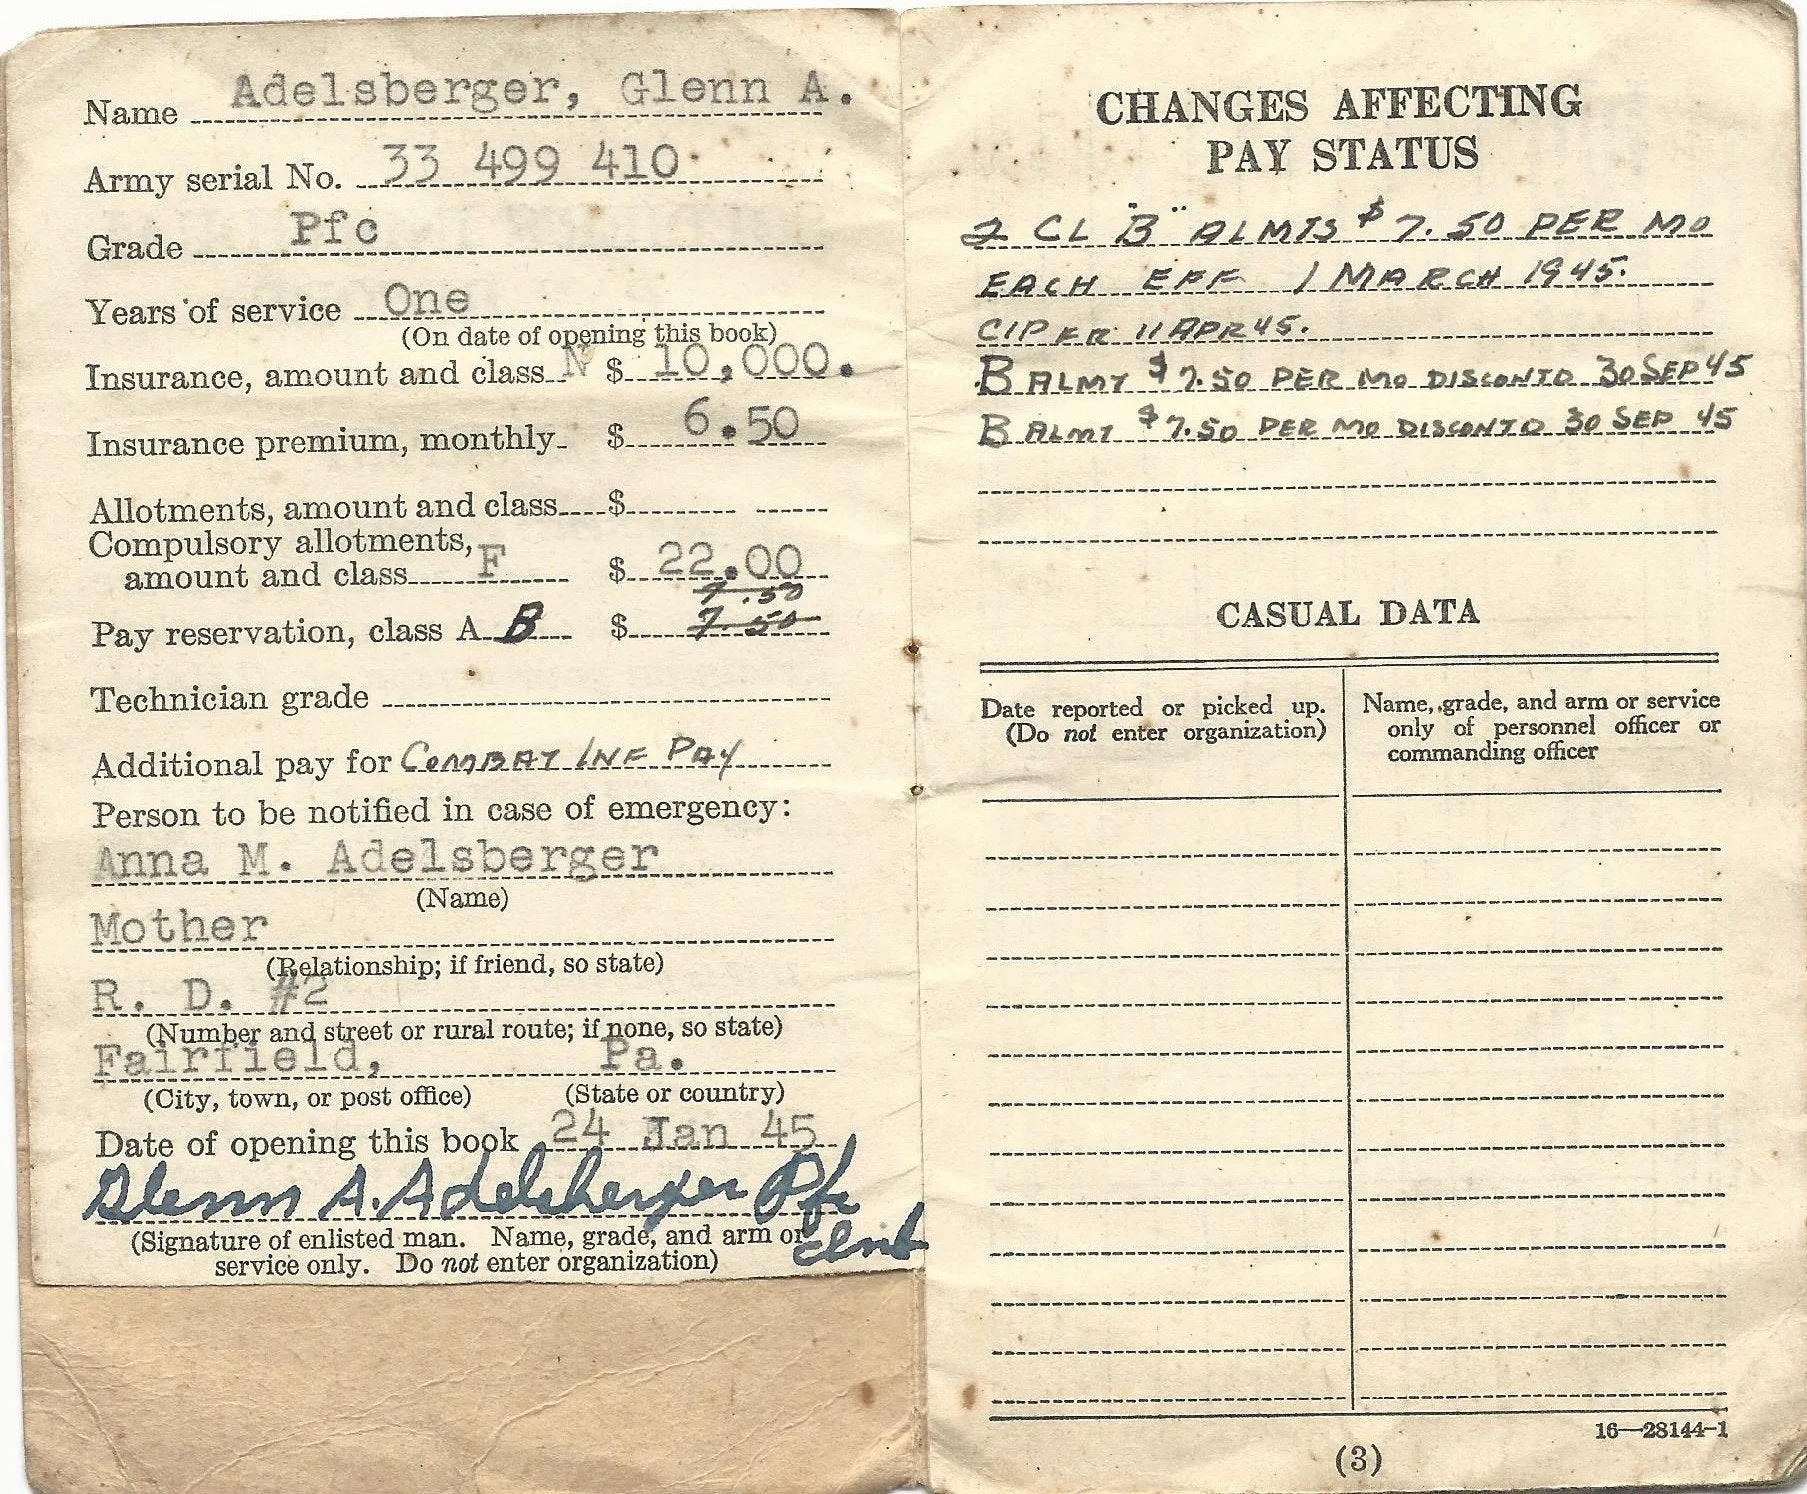 Name Adelsberger, Glenn A.
Army serial No. 33 499 410
Grade Pfc
Years of service One
(On date of opening this book)
Insurance, amount and class N $ 10,000.
Insurance premium, monthly $ 6.50
Allotments, amount and class $
Compulsory allotments,
amount and class F $ 22.00
7.50
Pay reservation, class A B $ 7.50
Technician grade
Additional pay for COMBAT INF PAY
Person to be notified in case of emergency:
Anna M. Adelsberger
(Name)
Mother
(Relationship; if friend, so state)
R. D. #2
(Number and street or rural route; if none, so state)
Fairfield, Pa.
(City, town, or post office) (State or country)
Date of opening this book 24 Jan 45
Glenn A. Adelsberger Pfc
(Signature of enlisted man. Name, grade, and arm or
service only. Do not enter organization)
CHANGES AFFECTING
PAY STATUS
2 CL "B" ALMTS $7.50 PER MO
EACH EFF 1 MARCH 1945.
CIP FR 11 APR 45.
B ALMT $7.50 PER MO DISCONTD 30 SEP 45
B ALMT $7.50 PER MO DISCONTD 30 SEP 45
CASUAL DATA
Date reported or picked up.
(Do not enter organization)
Name, grade, and arm or service
only of personnel officer or
commanding officer
16—28144-1
(3)